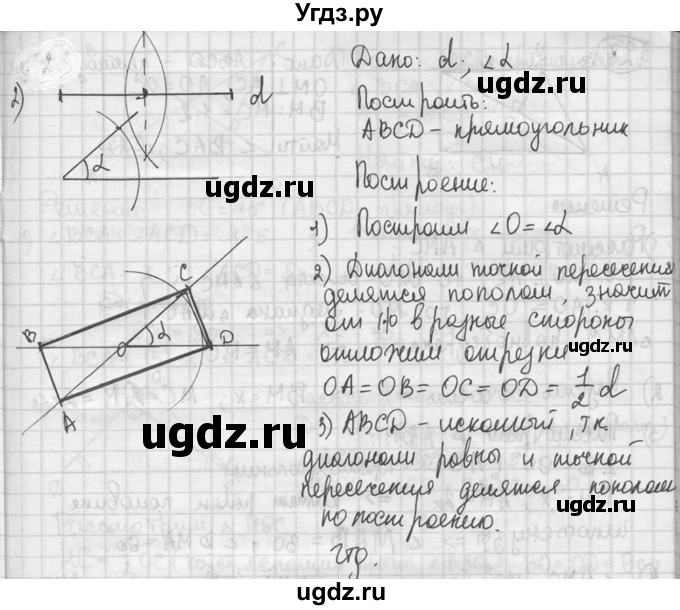 Угдз.ру
2)
d
α
Дано: d; ∠α
Построить:
ABCD - прямоугольник
Построение:
ugdz.ru
1) Построим ∠O = ∠α
2) Диагонали точкой пересечения
делятся пополам, значит
от т.O в разные стороны
отложим отрезки
OA = OB = OC = OD = 1/2 d
3) ABCD - искомый, т.к.
диагонали равны и точкой
пересечения делятся пополам
по построению.
чтд.
C
B
O
α
D
A
ugdz.ru
ugdz.ru
ugdz.ru
ugdz.ru
ugdz.ru